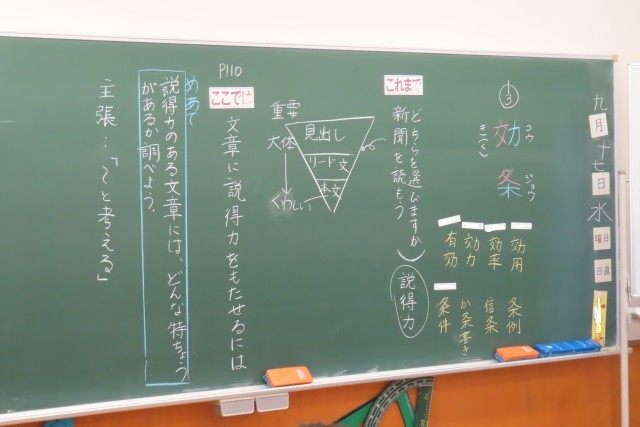 九月十七日水曜日
日直
③
効 コウ き(く)
条 ジョウ
効用
効率
効力
有効
条例
信条
か条書き
条件
これまで
どちらを選びますか
新聞を読もう
説得力
重要
大体
くわしい
見出し
リード文
本文
P110
ここでは
文章に説得力をもたせるには
めあて
説得力のある文章には、どんな特ちょう
があるか調べよう。
主張…「〜と考える」